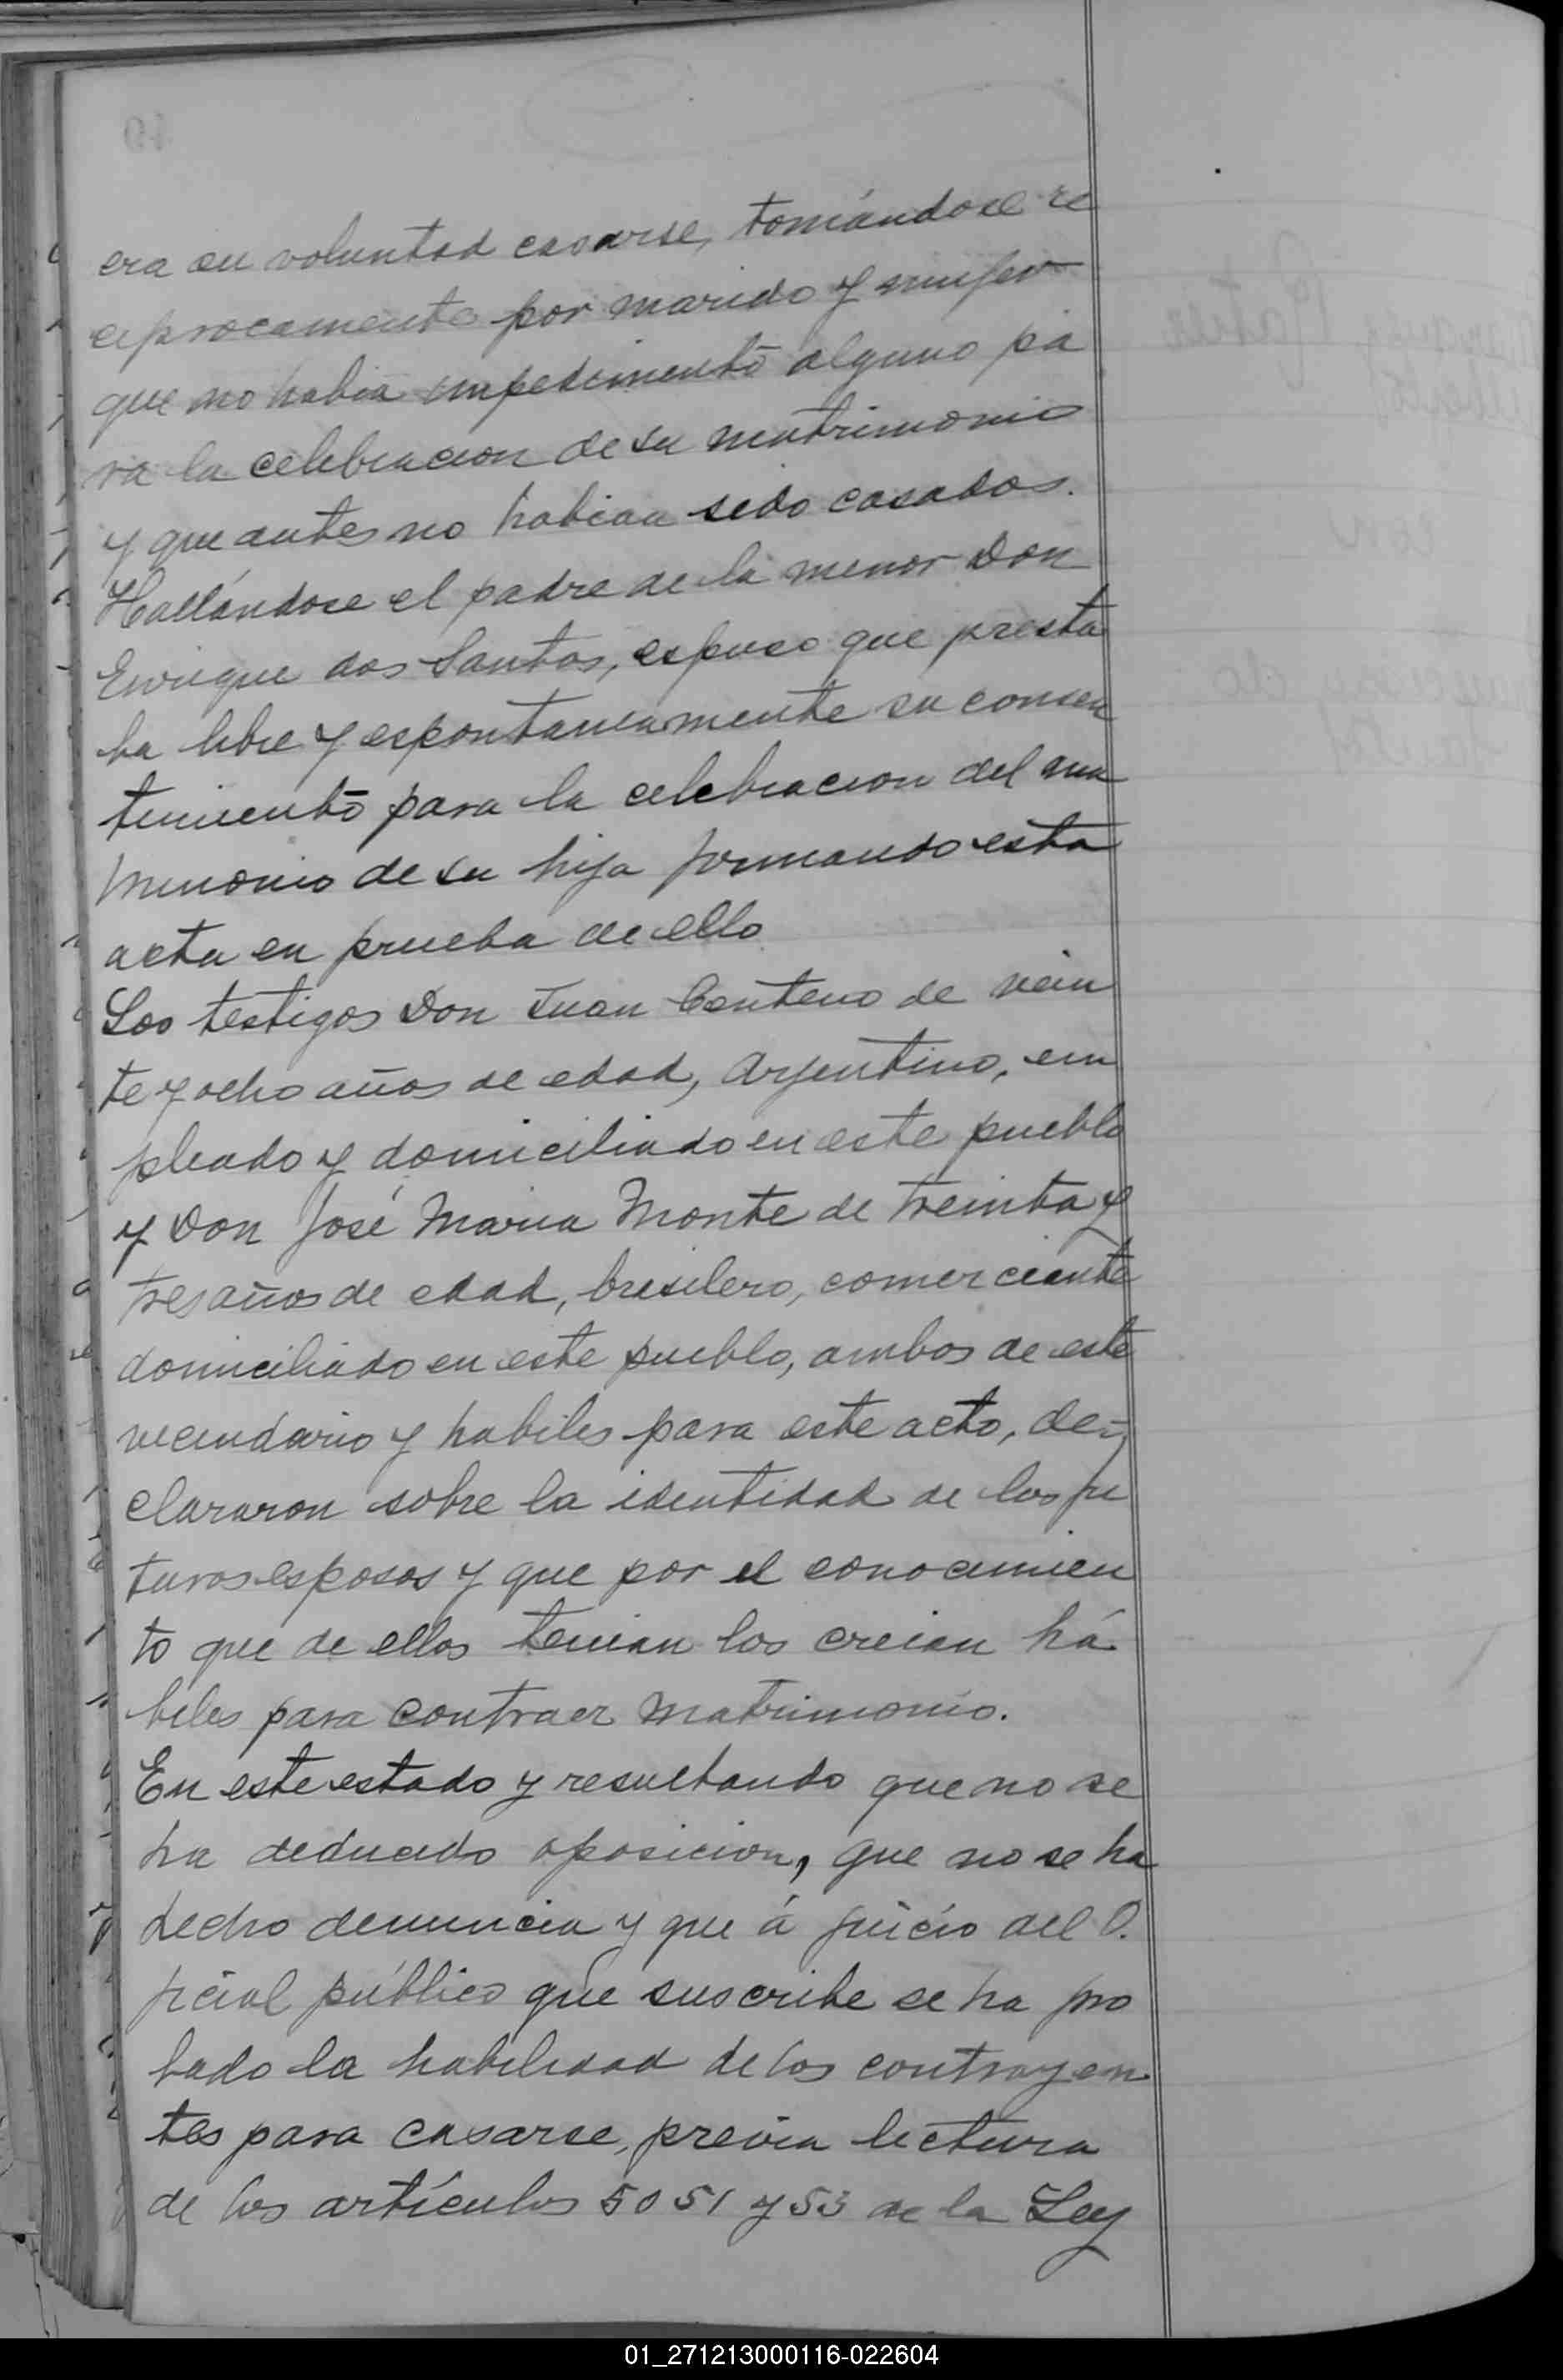 era su voluntad casarse, tomándose re
ciprocamente por marido y mujer
que no habia impedimento alguno pa
ra la celebracion de su matrimonio
y que antes no habian sido casados.
Hallándose el padre de la menor Don
Enrique dos Santos, espuso que presta
ba libre y espontaneamente su consen
timiento para la celebracion del ma
trimonio de su hija firmando esta
acta en prueba de ello
Los testigos Don Juan Centeno de vein
te y ocho años de edad, Argentino, em
pleado y domiciliado en este pueblo
y Don José Maria Monte de treinta y
tres años de edad, brasilero, comerciante
domiciliado en este pueblo, ambos de este
vecindario y habiles para este acto, de-
clararon sobre la identidad de los fu
turos esposos y que por el conocimien
to que de ellos tenian los creian há
biles para contraer matrimonio.
En este estado y resultando que no se
ha deducido oposicion, que no se ha
hecho denuncia y que á juicio del O.
ficial público que suscribe se ha pro
bado la habilidad de los contrayen
tes para casarse, previa lectura
de los artículos 50 51 y 53 de la Ley
01_271213000116-022604